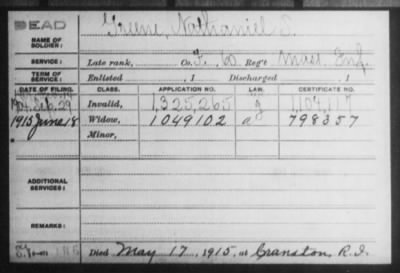 DEAD
Greene, Nathaniel S.
NAME OF SOLDIER:
SERVICE: Late rank, Co. F, 60 Reg't Mass. Inf.
TERM OF SERVICE: Enlisted , 1 Discharged , 1
DATE OF FILING. CLASS. APPLICATION NO. LAW. CERTIFICATE NO.
1904 Sep. 29 Invalid, 1,325,265 g 1,104,117
1915 June 18 Widow, 1049102 a 798357
Minor,
ADDITIONAL SERVICES:
REMARKS:
Died May 17, 1915, at Cranston, R.I.